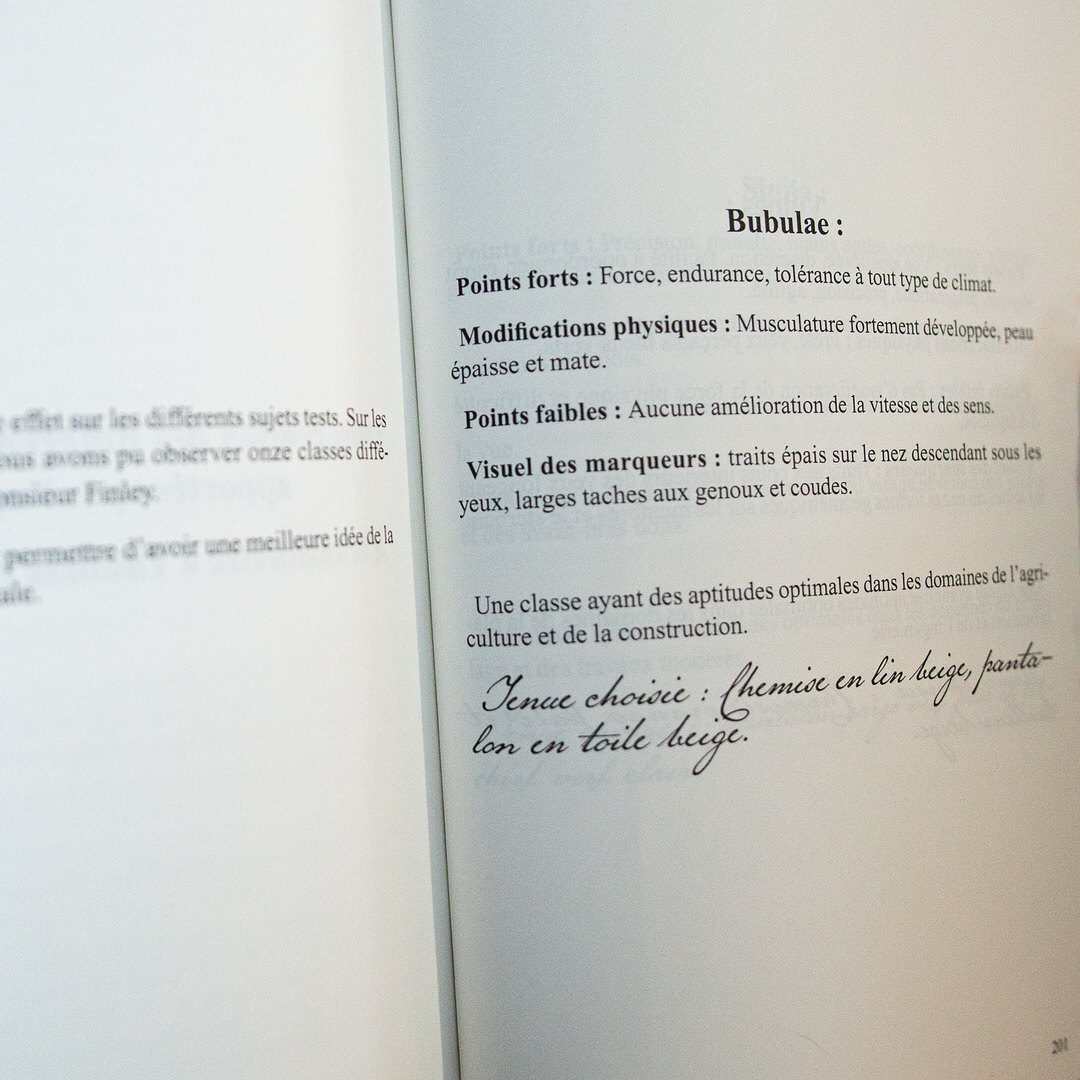 effet sur les différents sujets tests. Sur les
avons pu observer onze classes diffé-
Finley.
permettre d'avoir une meilleure idée de la
Bubulae :
Points forts : Force, endurance, tolérance à tout type de climat.
Modifications physiques : Musculature fortement développée, peau
épaisse et mate.
Points faibles : Aucune amélioration de la vitesse et des sens.
Visuel des marqueurs : traits épais sur le nez descendant sous les
yeux, larges taches aux genoux et coudes.
Une classe ayant des aptitudes optimales dans les domaines de l'agri-
culture et de la construction.
Tenue choisie : Chemise en lin beige, panta-
lon en toile beige.
201